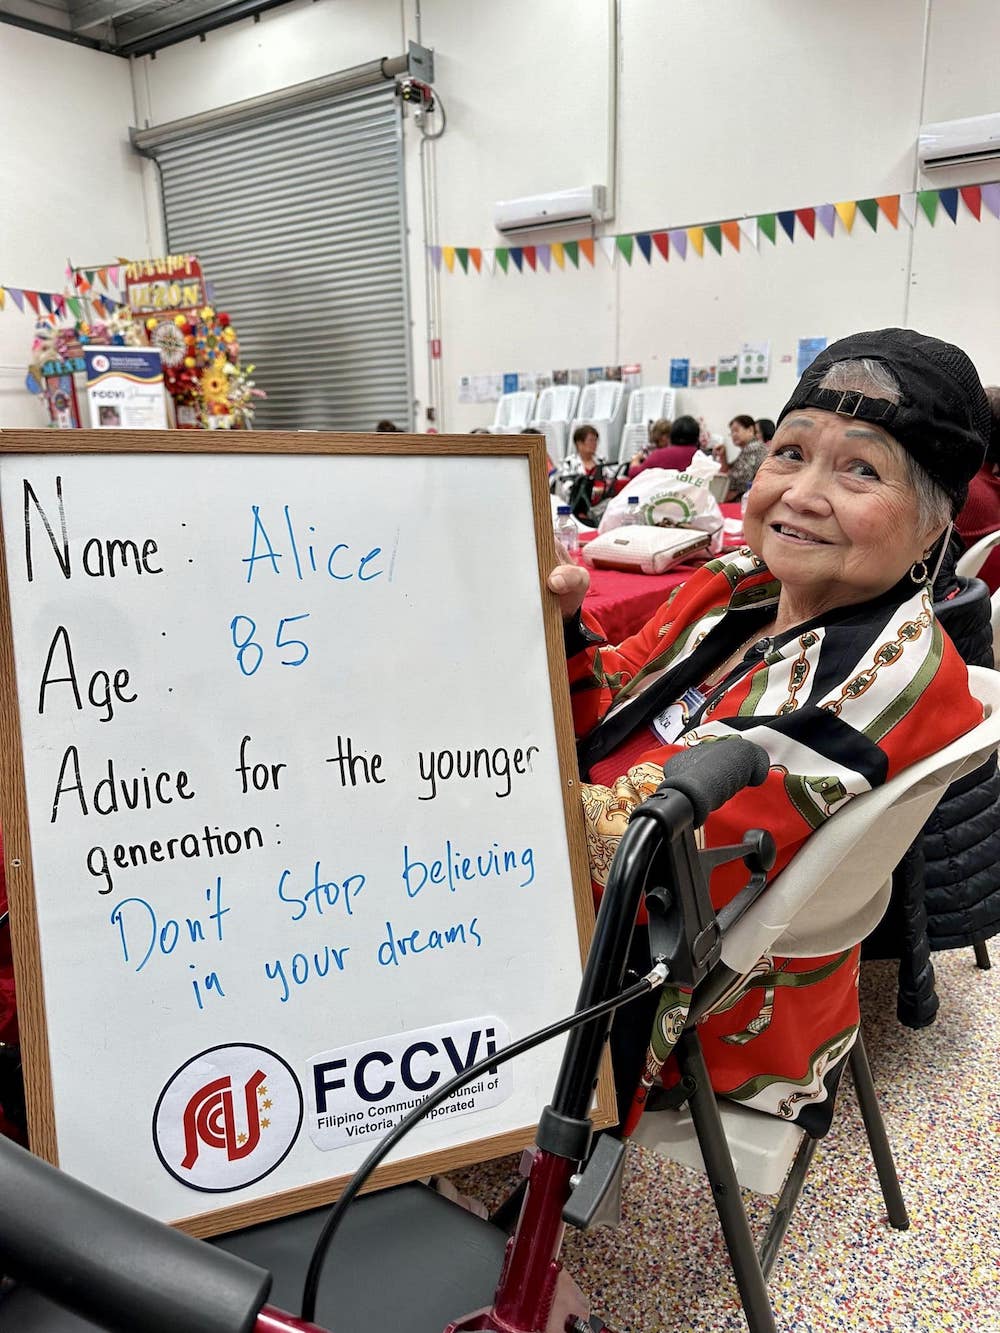 LUZON
FCCVi
ABLE
REUSE
Name: Alice
Age: 85
Advice for the younger
generation:
Don't stop believing
in your dreams
FCCVi
Filipino Community Council of
Victoria, Incorporated